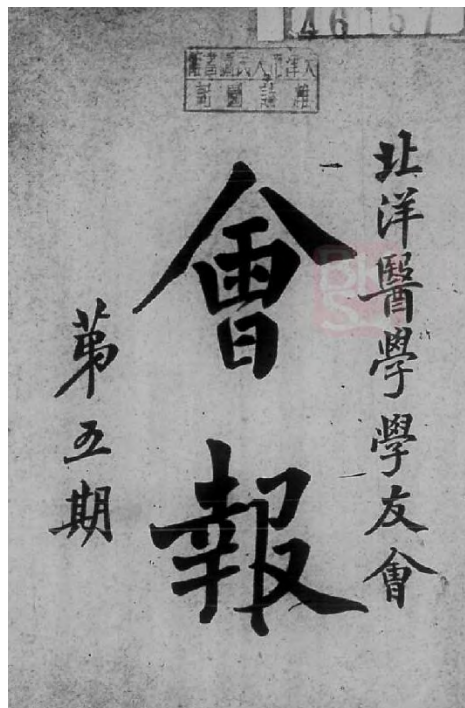 46157
天津市人民圖書館
北洋醫學學友會
會報
第五期